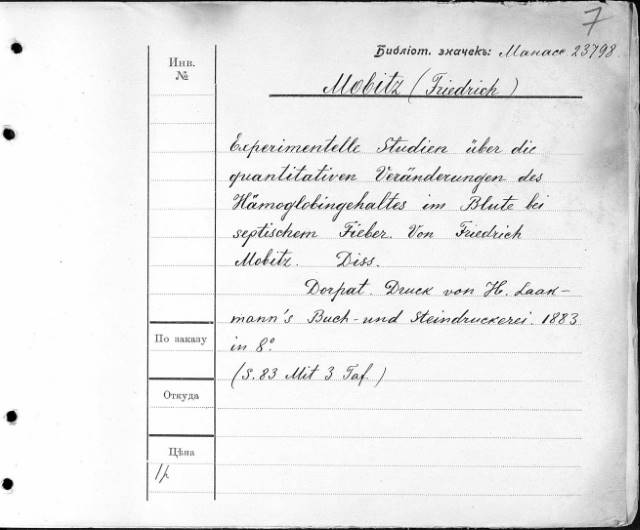 7
Библіот. значекъ: Манасе 23798
Инв.
№
Mobitz (Friedrich)
Experimentelle Studien über die
quantitativen Veränderungen des
Hämoglobingehaltes im Blute bei
septischem Fieber. Von Friedrich
Mobitz. Diss.
Dorpat. Druck von H. Laak-
mann's Buch- und Steindruckerei. 1883
in 8º.
(S. 83 Mit 3 Taf.)
По заказу
Откуда
Цѣна